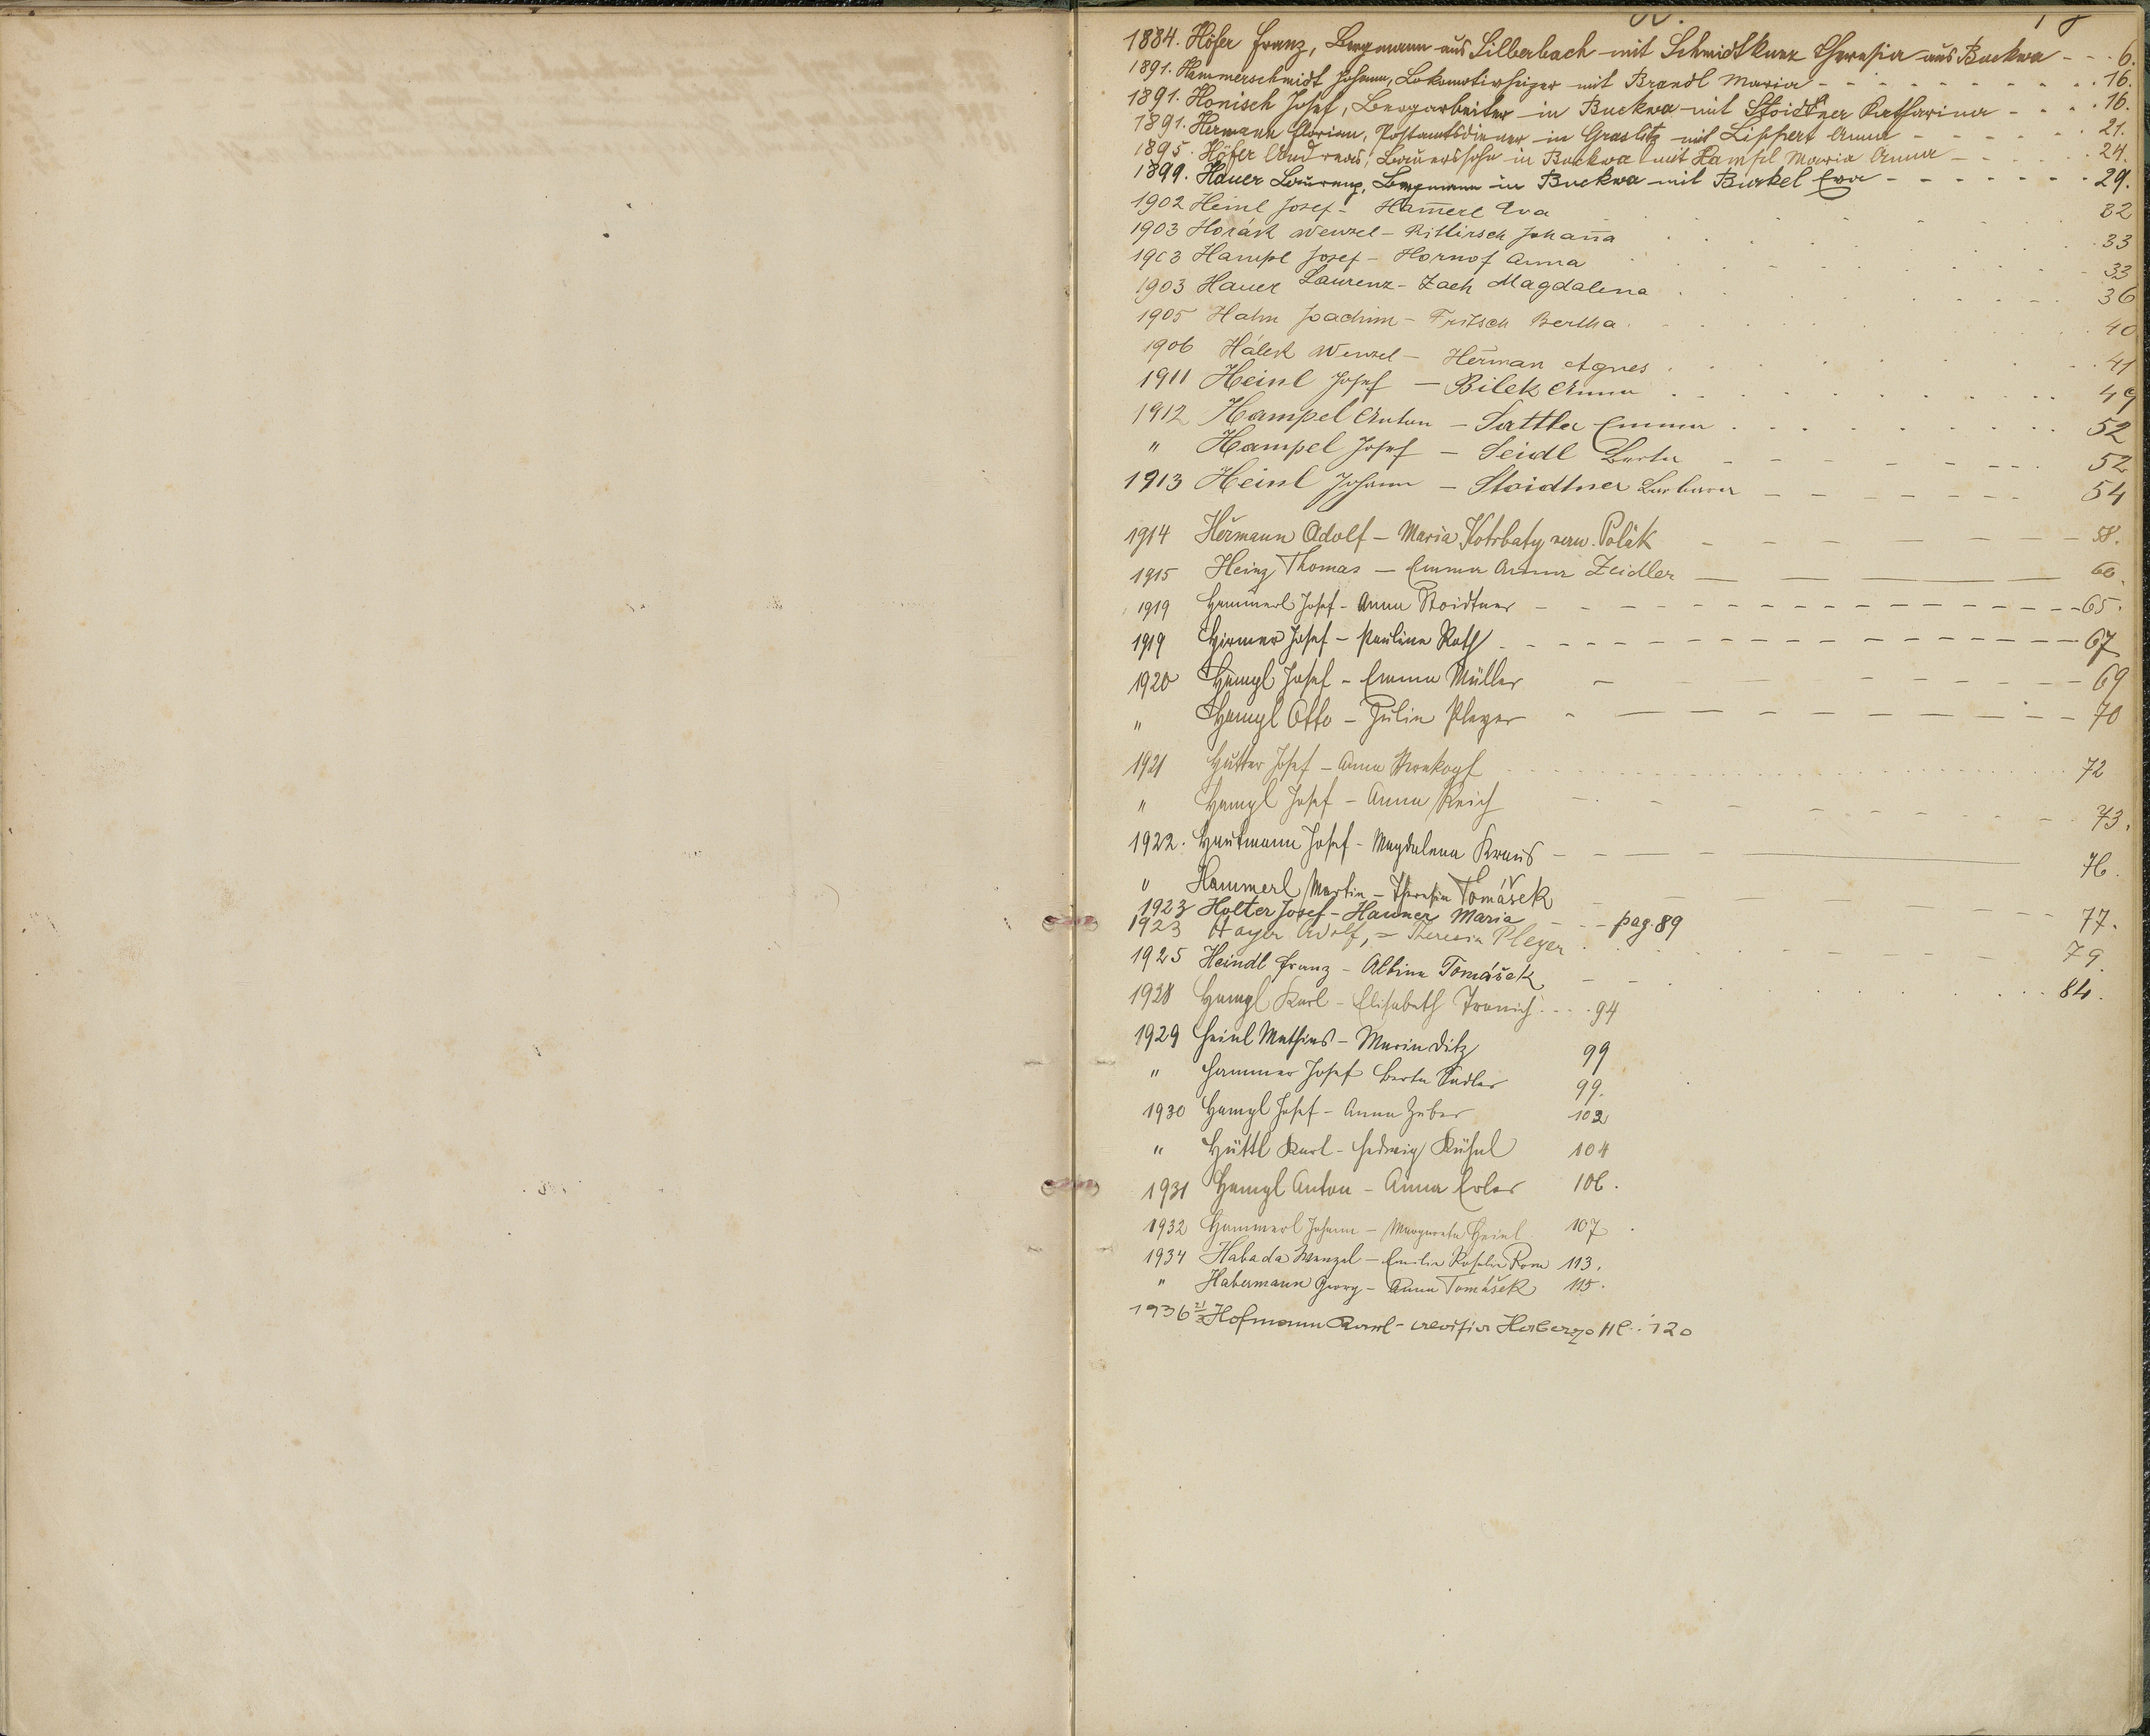 1884. Höfer Franz, Bergmann aus Silberbach mit Schmidtkunz Theresia aus Buckwa - - - 6.
1891. Hammerschmidt Johann, Lokomotivheizer mit Brandl Maria - - - 16.
1891. Honisch Josef, Bergarbeiter in Buckwa mit Stoidtner Katharina - - - 16.
1891. Hermann Florian, Postamtsdiener in Graslitz mit Lippert Anna - - - 21.
1895. Höfer Andreas, Bauerssohn in Buckwa mit Hampl Maria Anna - - - 24.
1899. Hauer Laurenz, Bergmann in Buckwa mit Burkel Eva - - - 29.
1902 Heinl Josef - Ham̄erl Eva 32
1903 Horák Wenzel - Rittirsch Johan̄a 33
1903 Hampl Josef - Hornof Anna 33
1903 Hauer Laurenz - Zach Magdalena 36
1905 Hahn Joachim - Fritsch Bertha 40
1906 Hálek Wenzel - Heřman Agnes 41
1911 Heinl Josef - Bilek Anna 49
1912 Hampel Anton - Sattler Emma 52
" Hampel Josef - Seidl Berta 52
1913 Heinl Johann - Stoidtner Barbara 54
1914 Heřmann Adolf - Maria Kotrbatý verw. Polák 58.
1915 Heinz Thomas - Emma Anna Zeidler 60.
1919 Hammerl Josef - Anna Stoidtner 65.
1919 Hirmer Josef - Pauline Roth 67
1920 Hampl Josef - Emma Müller 69
" Hampl Otto - Julia Pleyer 70
1921 Hutter Josef - Anna 72
" Hampl Josef - Anna Reich 73.
1922. Hautmann Josef - Magdalena Kraus 76.
" Hammerl Martin - Theresia Tomášek 77.
1923 Holter Josef - Hanner Maria - - pag. 89
1923 Hoyer Adolf, = Theresia Pleyer 79.
1925 Heindl Franz - Albine Tomášek 84.
1928 Hampl Karl - Elisabeth 94
1929 Heinl Mathias - Maria Ditz 99
" Hammer Josef Berta Sadler 99.
1930 Hampl Josef - Anna Huber 102
" Hüttl Karl - Hedwig Kühnl 104
1931 Hampl Anton - Anna Erler 106.
1932 Hammerl Johann - Margareta Heinl 107
1934 Habada Wenzel - Emilie Rosalia 113.
" Habermann Georg - Anna Tomášek 115.
1936 Hofmann Karl - 120